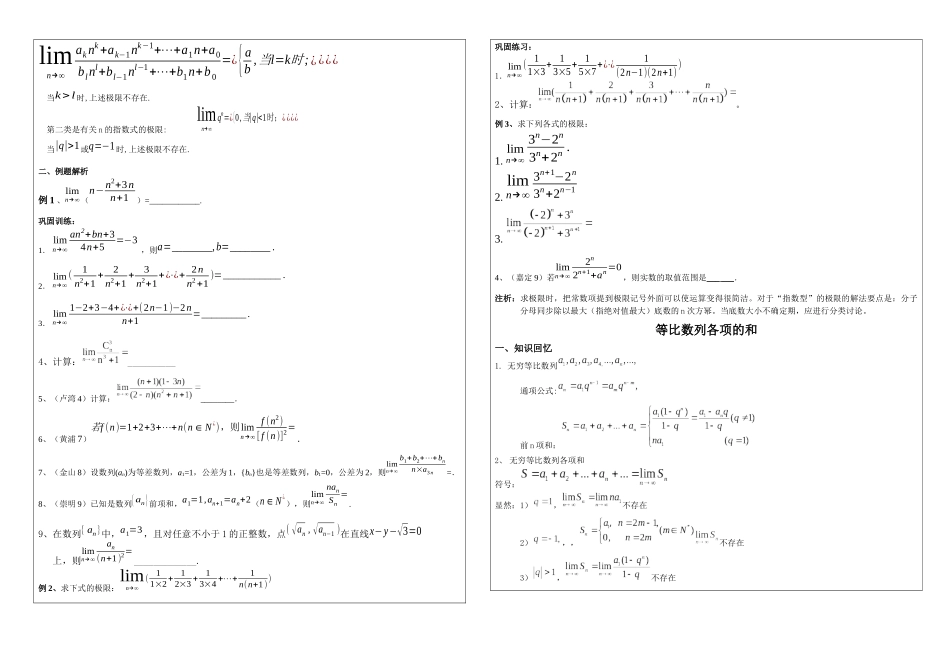 lim n→∞ (a_k n^k+a_{k−1}n^{k−1}+⋯+a_1n+a_0)/(b_l n^l+b_{l−1}n^{l−1}+⋯+b_1n+b_0)=¿{a/b,当l=k时;¿¿¿¿
当k>l时,上述极限不存在.
第二类是有关 n 的指数式的极限: lim n→∞ q^n=¿{0,当|q|<1时; ¿¿¿¿
当|q|>1或q=−1时,上述极限不存在.
二、例题解析
例 1 、lim n→∞（n−(n^2+3n)/(n+1)）=___________.
巩固训练：
1. lim n→∞ (an^2+bn+3)/(4n+5)=−3，则a=________,b=________.
2. lim n→∞(1/(n^2+1)+2/(n^2+1)+3/(n^2+1)+¿⋅¿+2n/(n^2+1))=___________.
3. lim n→∞ (1−2+3−4+¿⋅¿+(2n−1)−2n)/(n+1)=_________.
4、计算：lim n→∞ C_n^3/(n^3+1)=__________
5、（卢湾 4）计算：lim n→∞ (n+1)(1−3n)/((2−n)(n^2+n+1))=_______.
6、（黄浦 7）若f(n)=1+2+3+⋯+n(n∈N*)，则lim n→∞ f(n^2)/[f(n)]^2=.
7、（金山 8）设数列{a_n}为等差数列，a_1=1，公差为 1，{b_n}也是等差数列，b_1=0，公差为 2，则lim n→∞ (b_1+b_2+⋯+b_n)/(n×a_{3n})=.
8、（崇明 9）已知是数列{a_n}前项和，a_1=1,a_{n+1}=a_n+2（n∈N*），则lim n→∞ na_n/S_n=.
9、在数列{a_n}中，a_1=3，且对任意不小于 1 的正整数，点(√a_n,√a_{n−1})在直线x−y−√3=0
上，则lim n→∞ a_n/(n+1)^2=_____________.
例 2、求下式的极限：lim n→∞(1/(1×2)+1/(2×3)+1/(3×4)+⋯+1/(n(n+1)))
巩固练习：
1. lim n→∞(1/(1×3)+1/(3×5)+1/(5×7)+¿⋅¿1/((2n−1)(2n+1)))
2、计算：lim n→∞(1/(n(n+1))+2/(n(n+1))+3/(n(n+1))+⋯+n/(n(n+1)))=。
例 3、求下列各式的极限：
1. lim n→∞ (3^n−2^n)/(3^n+2^n).
2. lim n→∞ (3^{n+1}−2^n)/(3^n+2^{n−1})
3. lim n→∞ ((−2)^n+3^n)/((−2)^{n+1}+3^{n+1})=
4、（嘉定 9）若lim n→∞ 2^n/(2^{n+1}+a^n)=0，则实数的取值范围是______.
注析：求极限时，把常数项提到极限记号外面可以使运算变得很简洁。对于“指数型”的极限的解法要点是：分子
分母同步除以最大（指绝对值最大）底数的 n 次方幂。当底数大小不确定期，应进行分类讨论。
等比数列各项的和
一、知识回忆
1. 无穷等比数列a_1,a_2,a_3,a_4,…,a_n,…,
通项公式:a_n=a_1q^{n−1}=a_mq^{n−m},
前 n 项和:S_n=a_1+a_2+…+a_n={a_1(1−q^n)/(1−q)=(a_1−a_nq)/(1−q) (q≠1) na_1 (q=1)
2、 无穷等比数列各项和
符号：S=a_1+a_2+…+a_n+…=lim n→∞ S_n
显然：1）q=1，lim n→∞ S_n=lim n→∞ na_1不存在
2）q=−1，,S_n={a_1, n=2m−1, 0, n=2m (m∈N*) lim n→∞ S_n不存在
3）|q|>1，lim n→∞ S_n=lim n→∞ a_1(1−q^n)/(1−q)不存在